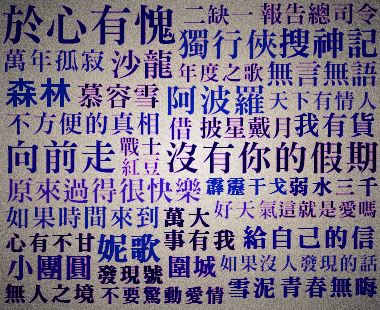 於心有愧 二缺一 報告總司令
獨行俠 搜神記
萬年孤寂 沙龍 年度之歌 無言無語
森林 慕容雪 阿波羅 天下有情人
不方便的真相 借 披星戴月 我有貨
向前走 戰士 紅豆 沒有你的假期
原來過得很快樂 霹靂 干戈 弱水三千
如果時間來到 萬大事有我 好天氣 這就是愛嗎
心有不甘 妮歌 給自己的信
小團圓 發現號 圍城 如果沒人發現的話
無人之境 不要驚動愛情 雪泥 青春無晦